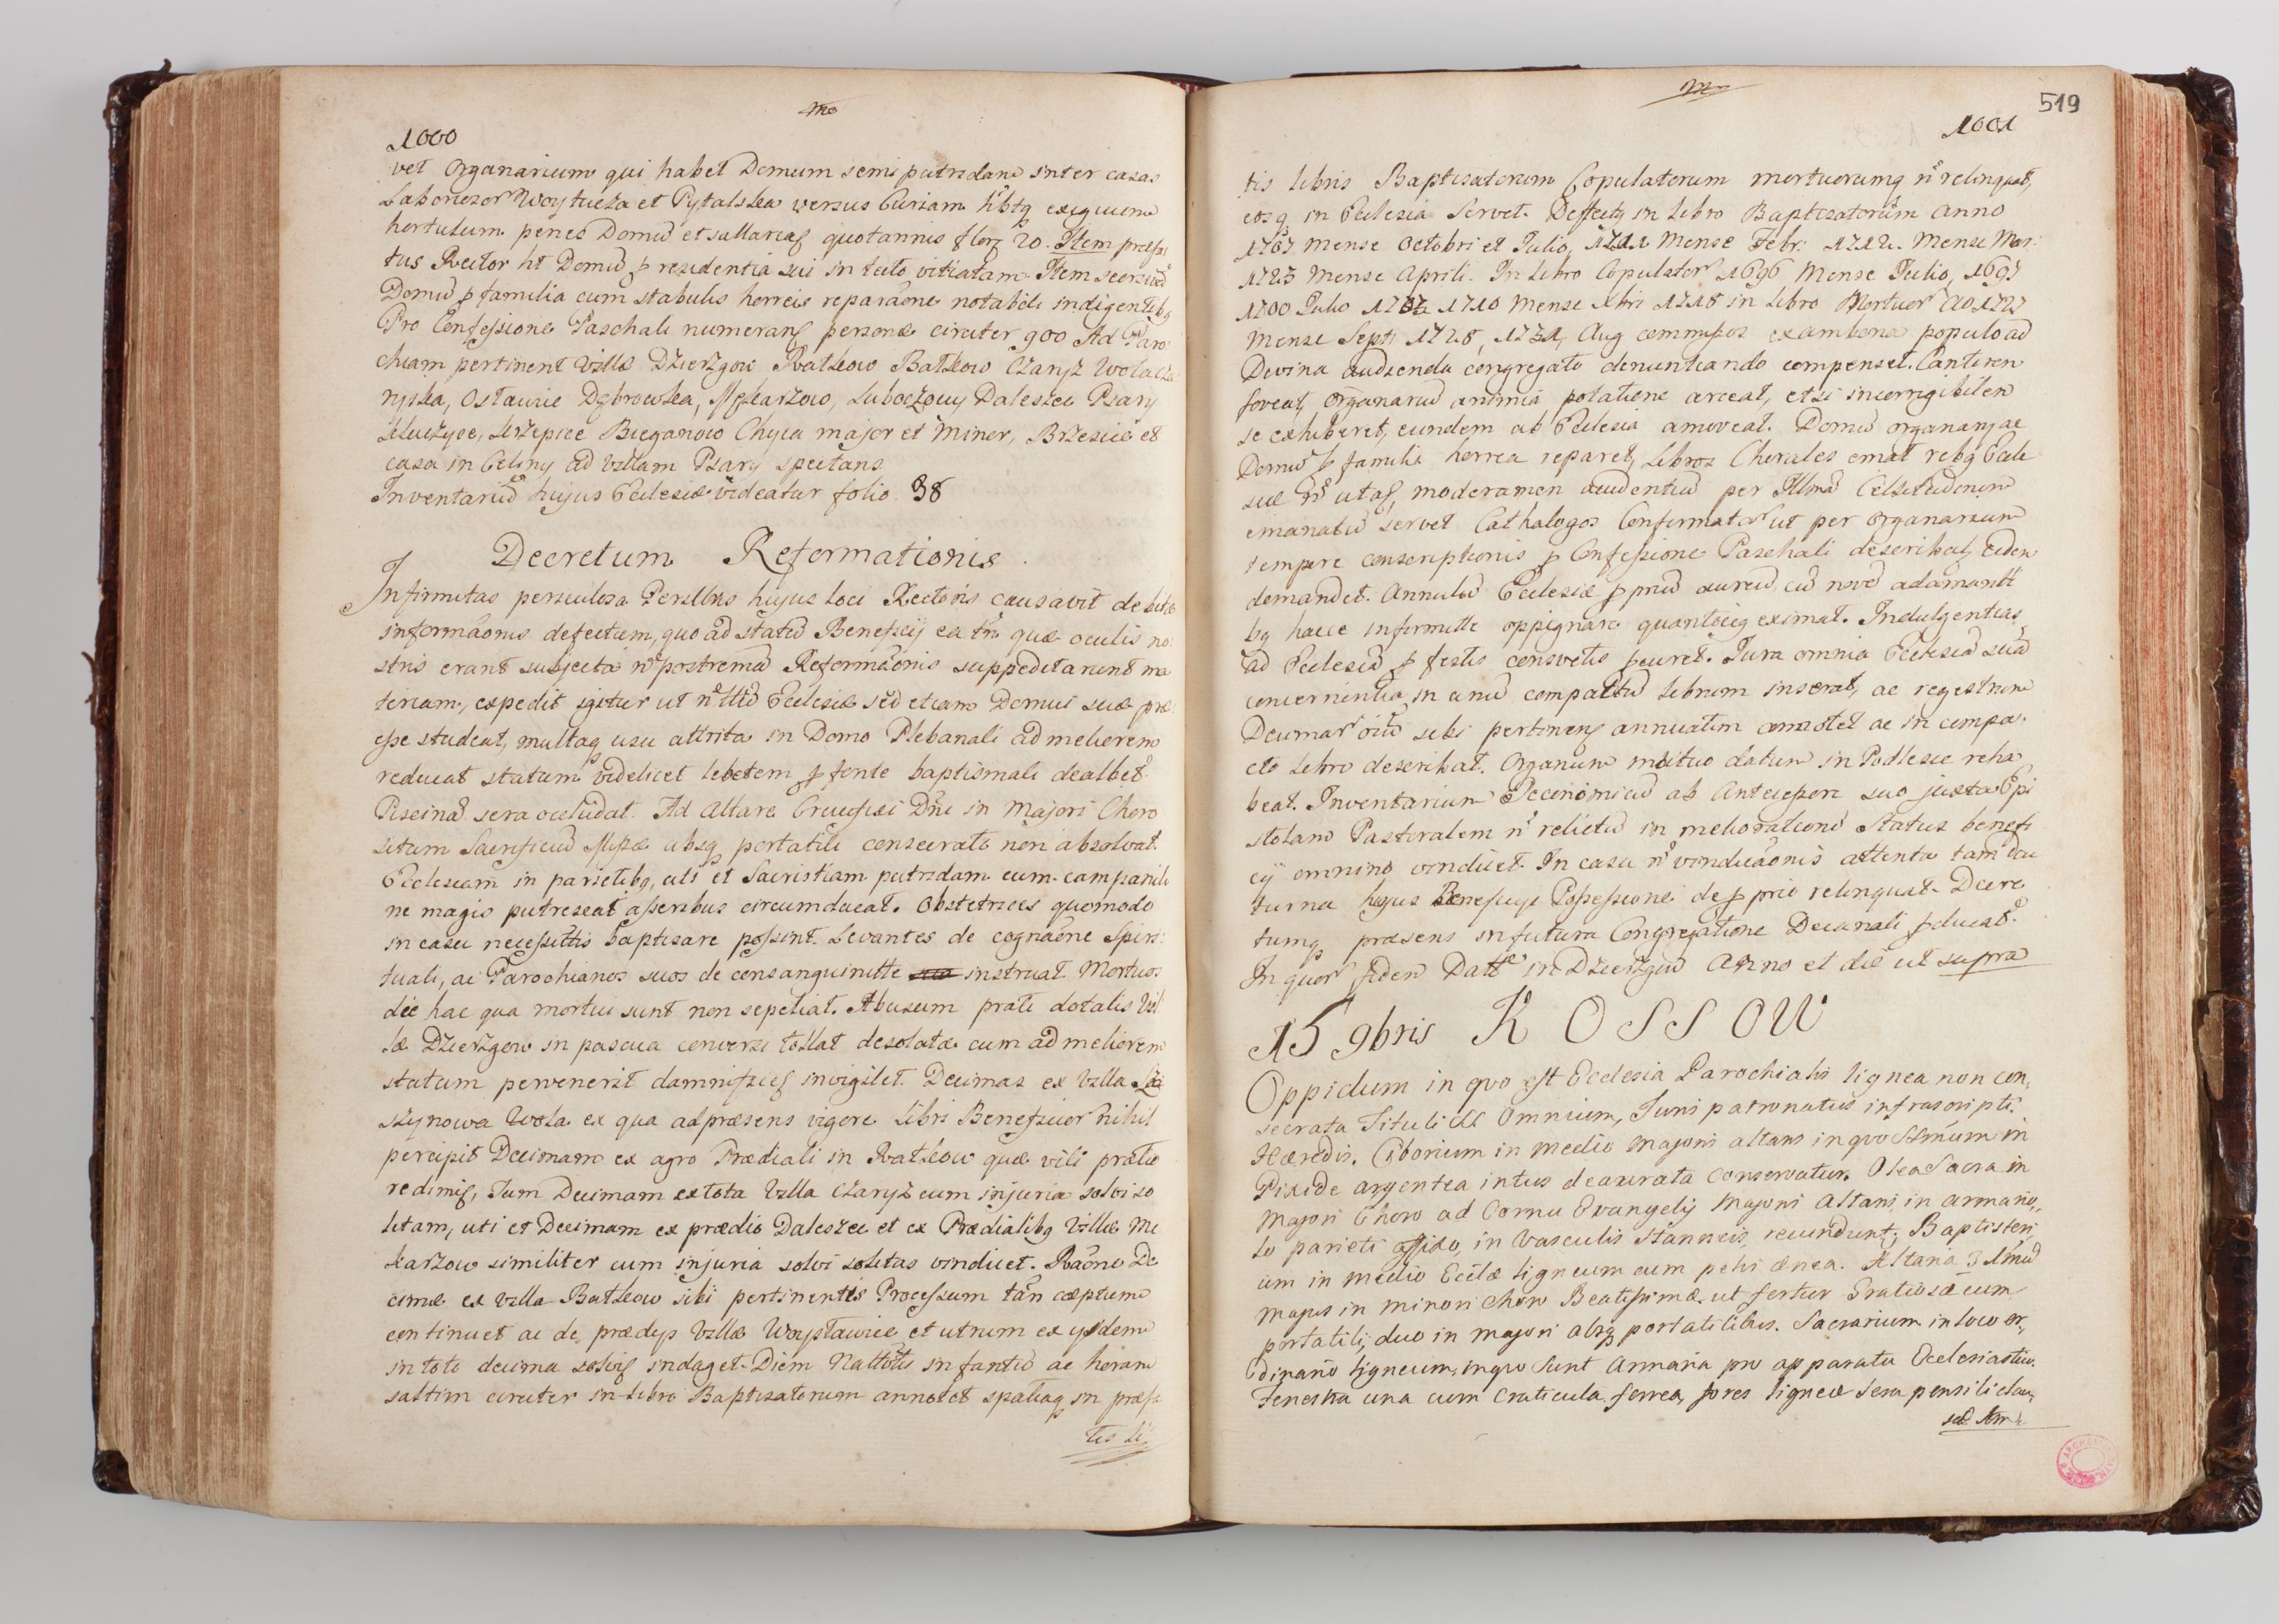 mo
1000
vet Organarium qui habet Domum semi putridam inter casas
Laboriosor Woytucza et Pytalska versus Curiam hbtq exiguum
hortulum penes Domũ et sallariaʃ quotannis flor 20. Item præfa
tus Rector ht Domũ ꝑ residentia sui in tecto vitiatam Item seorsivã
Domũ ꝑ familia cum stabulis horreis reparãone notabili indigentibq
Pro Confessione Paschali numeranʃ personæ circiter 900 Ad Paro
chiam pertinent Villæ Dzierzgow Ratkow Bałkow Czaryz Wola Cza
ryska, Ostawie Dębrowska, Mękarzow, Luboczowy Daleszec Psary
Kluczyce, Krzepice Bieganow Chyca major et Minor, Brzescie et
casa in Celiny ad Villam Psary spectans
Inventariũ hujus Ecclesiæ videatur folio 38
Decretum Reformationis
Infirmitas periculosa Perillris hujus loci Rectoris causavit debitæ
informãonis defectum, quo ad statũ Beneficij ea tñ quæ oculis no
stris erant subjecta postremã Reformãonis suppeditarunt ma
teriam, expedit igitur ut Ecclesiæ sed etiam Domui suæ præ
esse studeat, multaq usu attrita in Domo Plebanali ad meliorem
reducat statum videlicet lebetem ꝑ fonte baptismali dealbet
Piscinã sera occludat. Ad Altare Crucifixi Dñi in Majori Choro
situm Sacrificiũ Missæ absq portatili consecrato non absolvat
Ecclesiam in parietibq, uti et Sacristiam putridam cum campanili
ne magis putrescat asseribus circumducat. Obstetrices quomodo
in casu necessittis baptisare possint. Levantes de cognãone Spiri
tuali, ac Parochianos suos de consanguinitte instruat Mortuos
die hac qua mortui sunt non sepeliat. Abusum prati dotalis Vil
læ Dzierzgow in pascua conversi tollat desolatæ cum ad meliorem
statum pervenerit damnificieʃ invigilet. Decimas ex Villa
szynowa Wola ex qua ad præsens vigore libri Beneficior nihil
percipit Decimam ex agro Prædiali in Ratkow quæ vili prætio
redimiʃ, Tum Decimam ex tota Villa Czaryz cum injuria solvi so
litam, uti et Decimam ex prædio Daleszec et ex Prædialibq Villæ Me
karzow similiter cum injuria solvi solitas vindicet. Raõne De
cimæ ex Villa Bałkow sibi pertinentis Processum tãn cæptum
continuet ac de prædijs Villæ Woysławice et utrum ex ijsdem
in toto decima solviʃ indaget. Diem Nattittis infantiũ ac horam
saltim circiter in libro Baptisatorum annotet spatiaq in præfa
tis li
519
1001
tis libris Baptisatorum Copulatorum mortuorumq ñ relinquat,
eosq in Ecclesia Servet. Defectq in Libro Baptisatorum anno
1707 Mense Octobri et Julio, 1711 Mense Febr: 1712. Mense Mar:
1723 Mense Aprili. In Libro Copulator 1696 Mense Julio, 1697
1700 Julio 1710 Mense Xbri 1718 in Libro Mortuor Ao 1727
Mense Sept: 1728, 1731, Aug commissos ex ambona populo ad
Divina audienda congregato denuntiando compenset. Cantoren
foveat, Organariũ animia potatione arceat, et si incorrigibilem
se exhiberet, eundem ab Ecclesia amoveat. Domũ organarj ac
Domũ ꝑ familia horrea reparet, Libros Chorales emat rebq Eccle
siæ ñ utaʃ, moderamen audientiũ per Illmã Celsitudinem
emanatũ servet Cathalogos Confirmator ut per Organarium
tempore conscriptionis ꝑ Confessione Paschali describat, eidem
demandet. Annulũ Ecclesiæ ꝑpriũ aureũ, cũ novẽ adamanti
bq hacce infirmitte oppignore quantocig eximat. Indulgentias
ad Ecclesiã ꝑ festis consvetis ꝓcuret. Jura omnia Ecclesiã suã
concernentia in unũ compactũ librum inserat, ac regestrum
Decimar oiũ sibi pertinenʃ annuatim connotet ac in compa
cto Libro describat. Organum mutuo datum in Podlesie reha
beat. Inventarium Oeconomicũ ab Antecessore suo juxta Epi
stolam Pastoralem ñ relictũ in meliorationẽ Status benefi
cij omnino vindicet. In casu ñ vindicãonis attenta tam diu
turna hujus Beneficij Possessione de ꝓprio relinquat. Decre
tumq præsens in futura Congregatione Decanali ꝓducat.
In quor fidem Datt in Dzierzgow Anno et die ut supra
15 9bris KOSSOW
Oppidum in quo est Ecclesia Parochialis lignea non con,
secrata Tituli SS Omnium, Juris patronatus infrascripti
Hæredis. Ciborium in medio majoris altaris in quo SSmum in
Pixide argentea intus deaurata conservatur. Olea Sacra in
majori Choro ad Cornu Evangelij Majoris Altaris, in armario,
lo parieti affixo, in vasculis stanneis, reconduntr; Baptisteri
um in medio Ecclæ ligneum cum pelvi ænea. Altaria 3 1mũ
majus in minori Choro Beatissimæ ut fertur Gratiosæ cum
portatili, duo in majori absq portatilibus. Sacrarium in loco or,
dinario ligneum, in quo Sunt Armaria pro apparatu Ecclesiastico.
Fenestra una cum Craticula ferrea, fores ligneæ sera pensili clau,